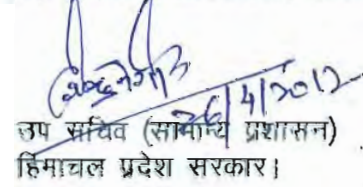 26/4/2017
उप सचिव (सामान्य प्रशासन)
हिमाचल प्रदेश सरकार।